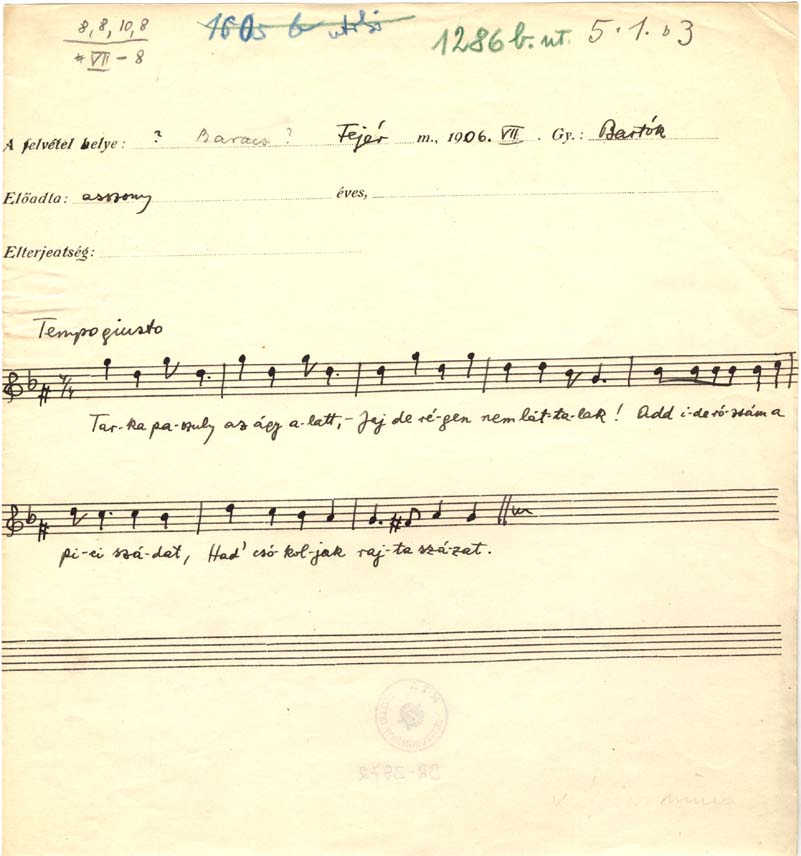 8, 8, 10, 8
VII - 8
1286 b. ut. 5.1. b 3
A felvétel helye: ? Baracs? Fejér m., 1906. VII. Gy.: Bartók
Előadta: asszony éves,
Elterjedtség:
Tempo giusto
Tar-ka pa-szuly az ágy a-latt, - Jaj de ré-gen nem lát-ta-lak! Add i-de ró-zsám a
pi-ci szá-dat, Had' csó-kol-jak raj-ta szá-zat.